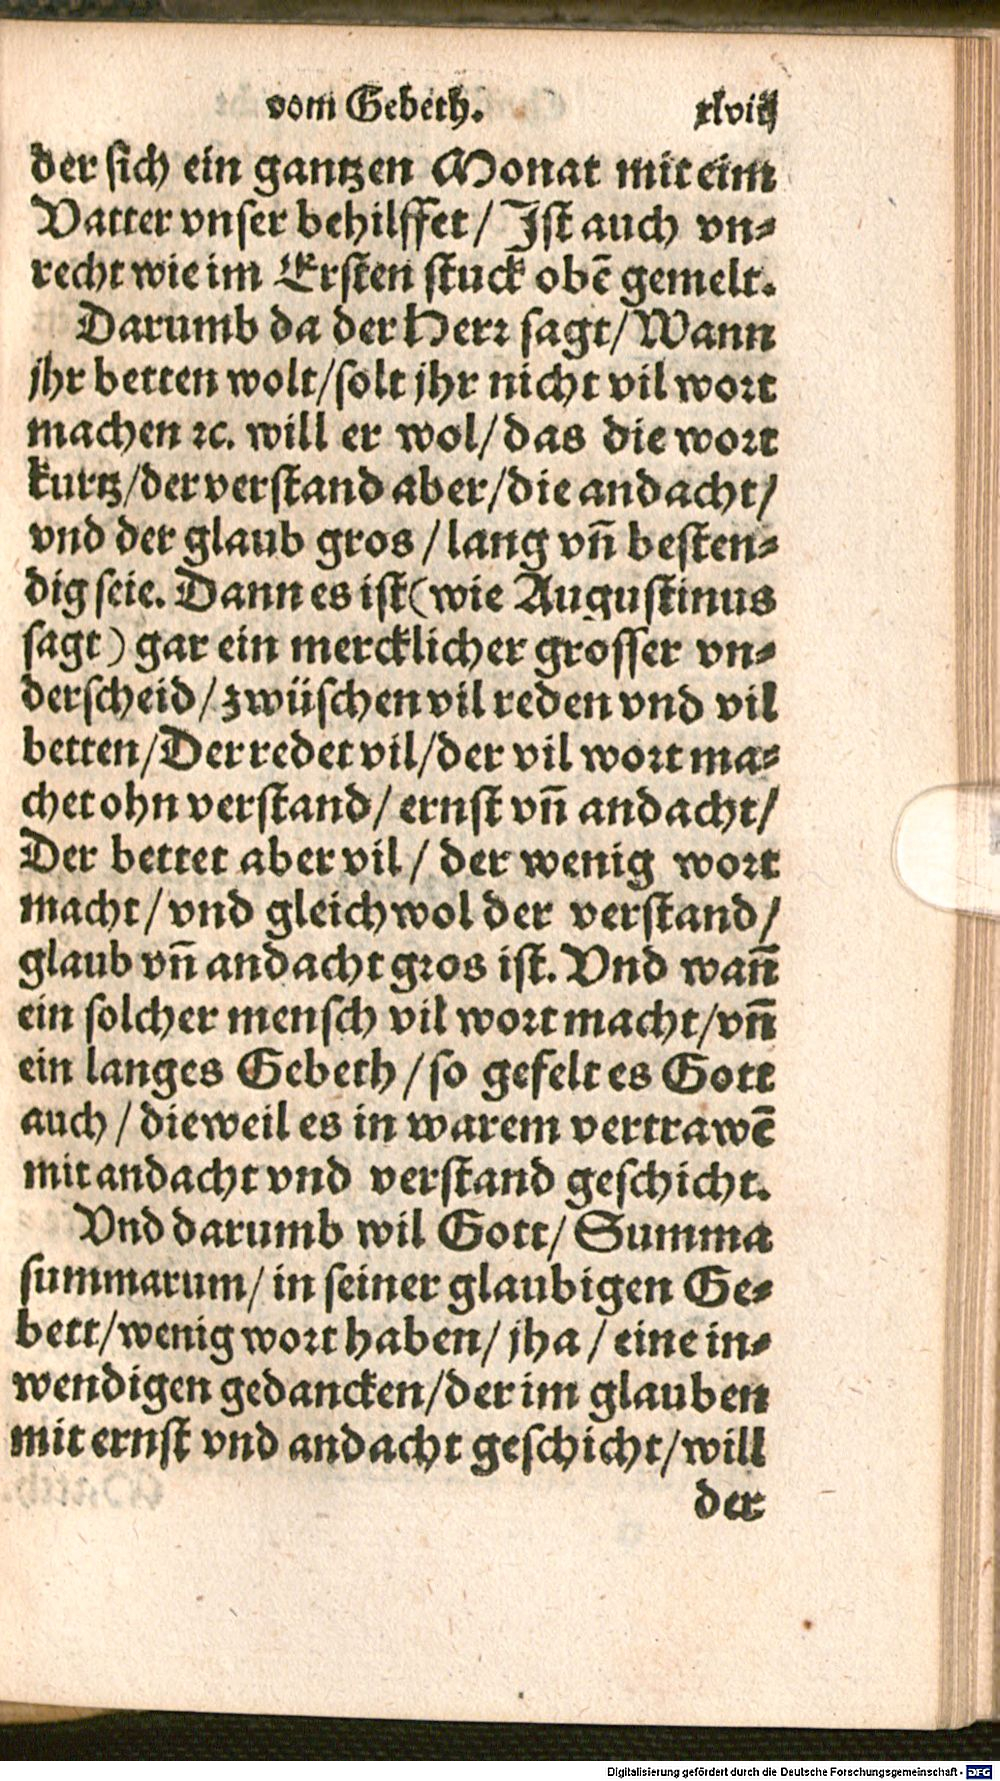 vom Gebeth. xlviij
der sich ein gantzen Monat mit eim
Vatter vnser behilffet / Ist auch vn⸗
recht wie im Ersten stuck obē gemelt.
Darumb da der Herr sagt / Wann
jhr betten wolt / solt jhr nicht vil wort
machen ꝛc. will er wol / das die wort
kurtz / der verstand aber / die andacht /
vnd der glaub gros / lang vn̄ besten⸗
dig seie. Dann es ist (wie Augustinus
sagt) gar ein mercklicher grosser vn⸗
derscheid / zwüschen vil reden vnd vil
betten / Der redet vil / der vil wort ma⸗
chet ohn verstand / ernst vn̄ andacht /
Der bettet aber vil / der wenig wort
macht / vnd gleichwol der verstand /
glaub vn̄ andacht gros ist. Vnd wan̄
ein solcher mensch vil wort macht / vn̄
ein langes Gebeth / so gefelt es Gott
auch / dieweil es in warem vertrawē
mit andacht vnd verstand geschicht.
Vnd darumb wil Gott / Summa
summarum / in seiner glaubigen Ge⸗
bett / wenig wort haben / jha / eine in⸗
wendigen gedancken / der im glauben
mit ernst vnd andacht geschicht / will
der
Digitalisierung gefördert durch die Deutsche Forschungsgemeinschaft - DFG